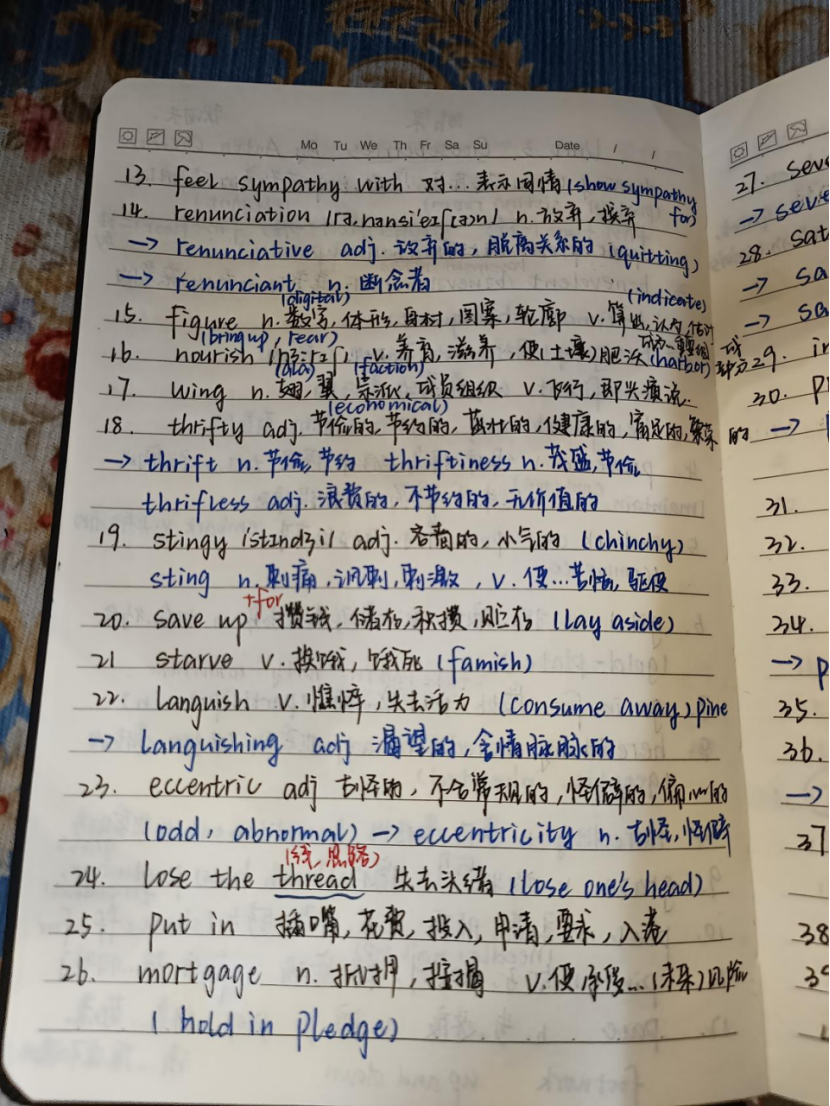 Mo Tu We Th Fr Sa Su Date / /
13. feel sympathy with 对…表示同情 (show sympathy for)
14. renunciation n. 放弃,
→ renunciative adj. 放弃的, 脱离关系的 (quitting)
→ renunciant n. 断念者
(digital) (indicate)
15. figure n. 数字, 体形, 图案, 轮廓 v. 算出, 认为, 估计
(bring up, rear)
16. nourish v. 养育, 滋养, 使(土壤)肥沃 (harbor)
(ala) (faction)
17. wing n. 翅, 翼, 宗派, 成员组织 v. 飞行, 即兴演说
(economical)
18. thrifty adj. 节俭的, 节约的, 茁壮的, 健康的, 富足的, 繁荣的
→ thrift n. 节俭, 节约 thriftiness n. 茂盛, 节俭
thrifless adj. 浪费的, 不节约的, 无价值的
19. stingy /'stɪndʒi/ adj. 吝啬的, 小气的 (chinchy)
sting n. 刺痛, 讽刺, 刺激, v. 使…苦恼, 驱使
+for
20. save up 攒钱, 储存, 积攒, 贮存 (lay aside)
21 starve v. 挨饿, 饿死 (famish)
22. languish v. 憔悴, 失去活力 (consume away) pine
→ languishing adj 渴望的, 含情脉脉的
23. eccentric adj 古怪的, 不合常规的, 怪僻的, 偏心的
(odd, abnormal) → eccentricity n. 古怪, 怪僻
(线, 思路)
24. lose the thread 失去头绪 (lose one's head)
25. put in 插嘴, 花费, 投入, 申请, 要求, 入港
26. mortgage n. 抵押, v. 使承受…(未来)风险
(hold in pledge)
27. seve
→ seve
28. sat
→ sa
→ sa
29. in
30. P
→
31.
32.
33.
34.
→ p
35.
36.
→
37
38
39